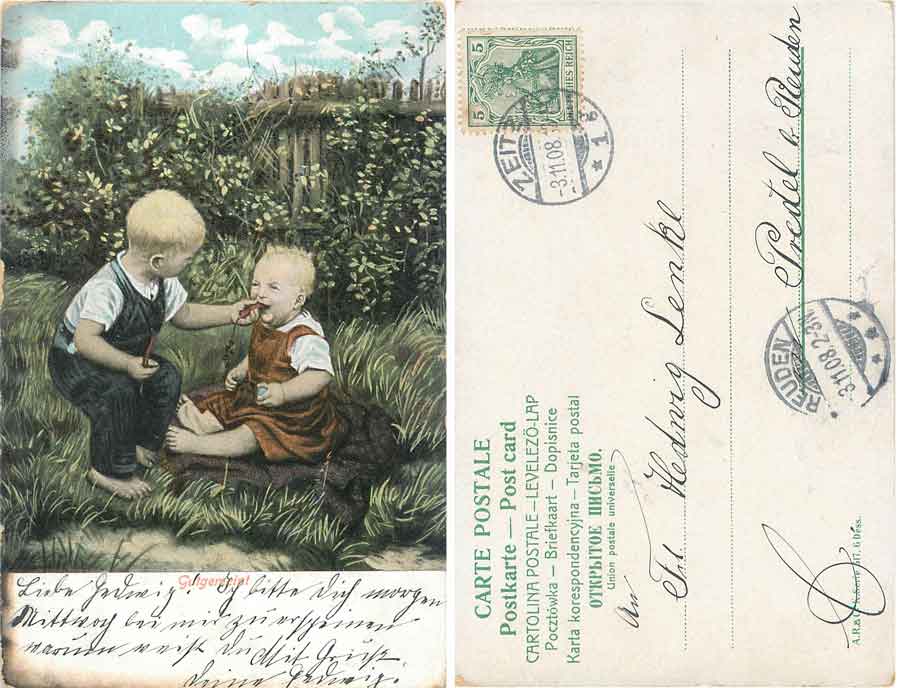 Gutgemeint
Liebe Hedwig! Ich bitte Dich morgen
Mittwoch bei mir zu erscheinen
warum weist Du Mit Gruß
Deine Hedwig.
5 5
5 DEUTSCHES REICH
ZEITZ
-3.11.08
* 1 *
CARTE POSTALE
Postkarte — Post card
CARTOLINA POSTALE — LEVELEZŐ-LAP
Pocztówka — Briefkaart — Dopisnice
Karta korespondencyjna — Tarjeta postal
ОТКРЫТОЕ ПИСЬМО.
Union postale universelle
An
Frl. Hedwig Lenkl
Predel b. Reuden
REUDEN
3.11.08.2-3N
A.R. & C.